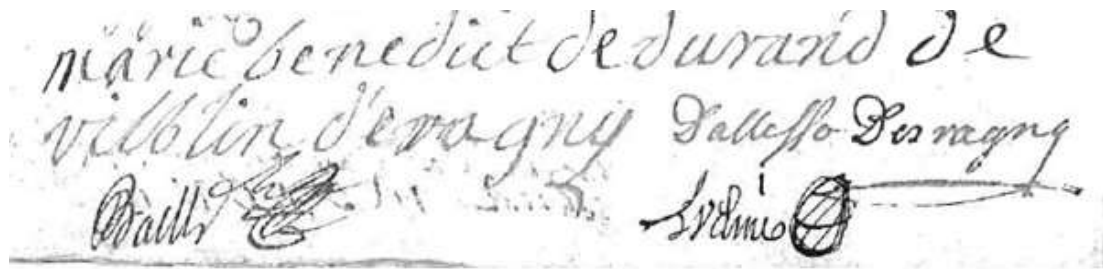 marie benedict de durand de
vilblin d'eragny Dalesso Desragny
Baille